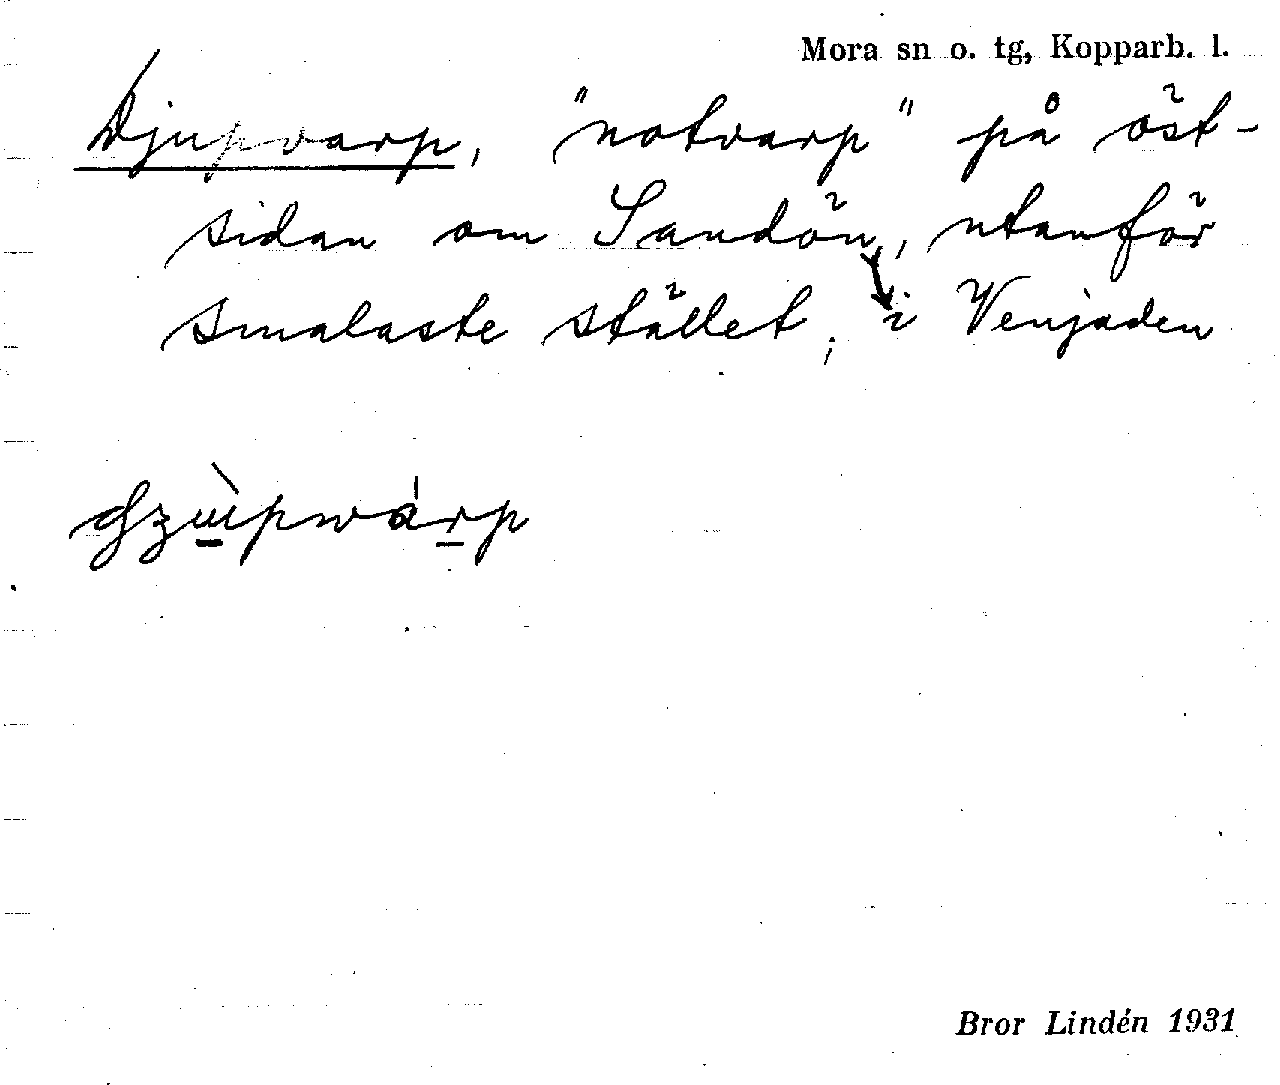 Mora sn o. tg, Kopparb. l.
Djupvarp, "notvarp" på öst-
sidan om Sandön, utanför
smalaste stället; i Venjaden
Bror Lindén 1931